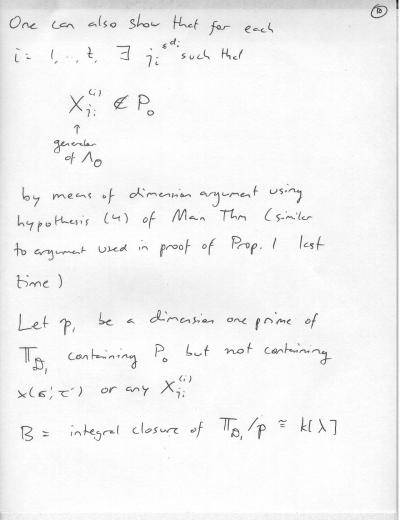 10
One can also show that for each
i = 1, .., t, ∃ j_i ≤ d_i such that
X_{j_i}^{(i)} ∉ P_0
↑
generator
of Λ_0
by means of dimension argument using
hypothesis (4) of Main Thm (similar
to argument used in proof of Prop. 1 last
time)
Let p, be a dimension one prime of
𝕋_{𝒟_1} containing P_0 but not containing
x(σ', τ') or any X_{j_i}^{(i)}
B = integral closure of 𝕋_{𝒟_1}/p ≅ k[λ]